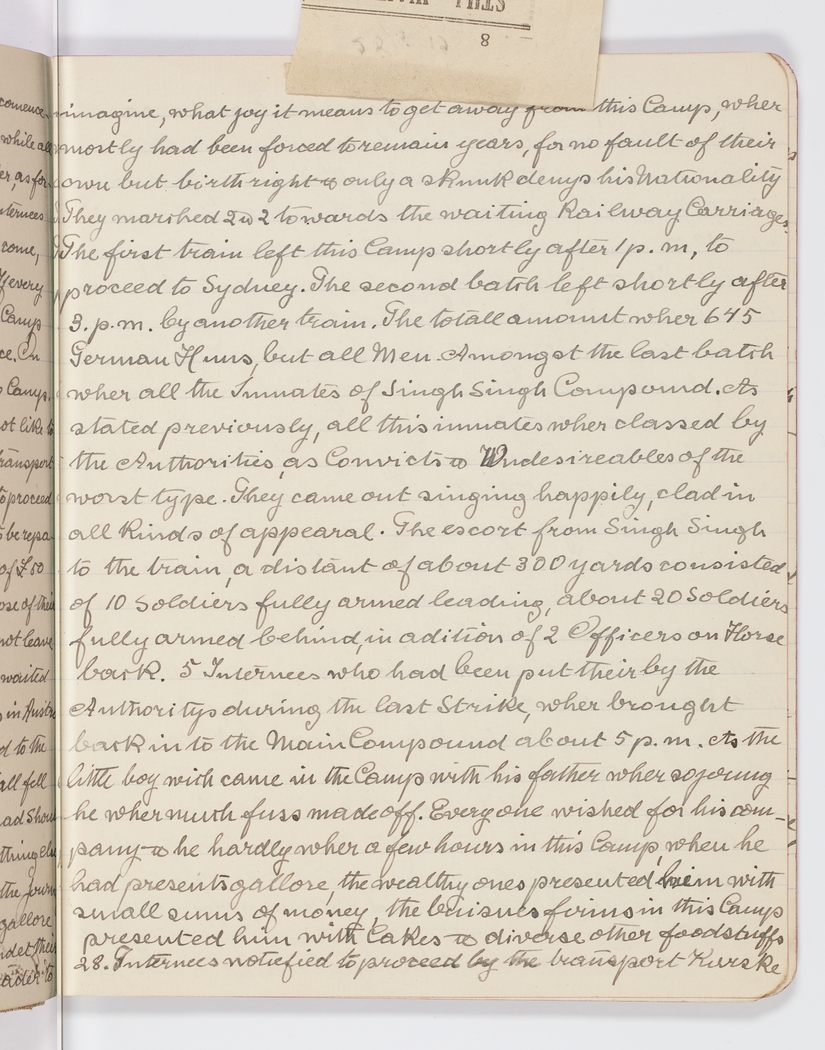 STILL
8
imagine, what joy it means to get away from this Camp, wher
mostly had been forced to remain years, for no fault of their
own but birthright & only a skunk denys his Nationality
They marched 2 & 2 towards the waiting Railway Carriages.
The first train left this Camp shortly after 1 p.m, to
proceed to Sydney. The second batch left shortly after
3. p.m. by another train. The totall amount wher 645
German Huns, but all Men. Amongst the last batch
wher all the Inmates of Singh Singh Compound. As
stated previously, all this inmates wher classed by
the Authorities, as Convicts & Undesireables of the
worst type. They came out singing happily, clad in
all kinds of appearal. The escort from Singh Singh
to the train, a distant of about 300 yards consisted
of 10 Soldiers fully armed leading, about 20 Soldiers
fully armed behind, in adition of 2 Officers on Horse
back. 5 Internees who had been put their by the
Authoritys during the last Strike, wher brought
back in to the Main Compound about 5 p.m. As the
little boy wich came in the Camp with his father wher so joung
he wher much fuss made off. Everyone wished for his com-
pany & he hardly wher a few hours in this Camp, when he
had presents gallore, the wealthy ones presented him with
small sums of money, the buisnes firms in this Camp
presented him with Cakes & diverse other foodstuffs
28. Internees notiefied to proceed by the transport Kurske